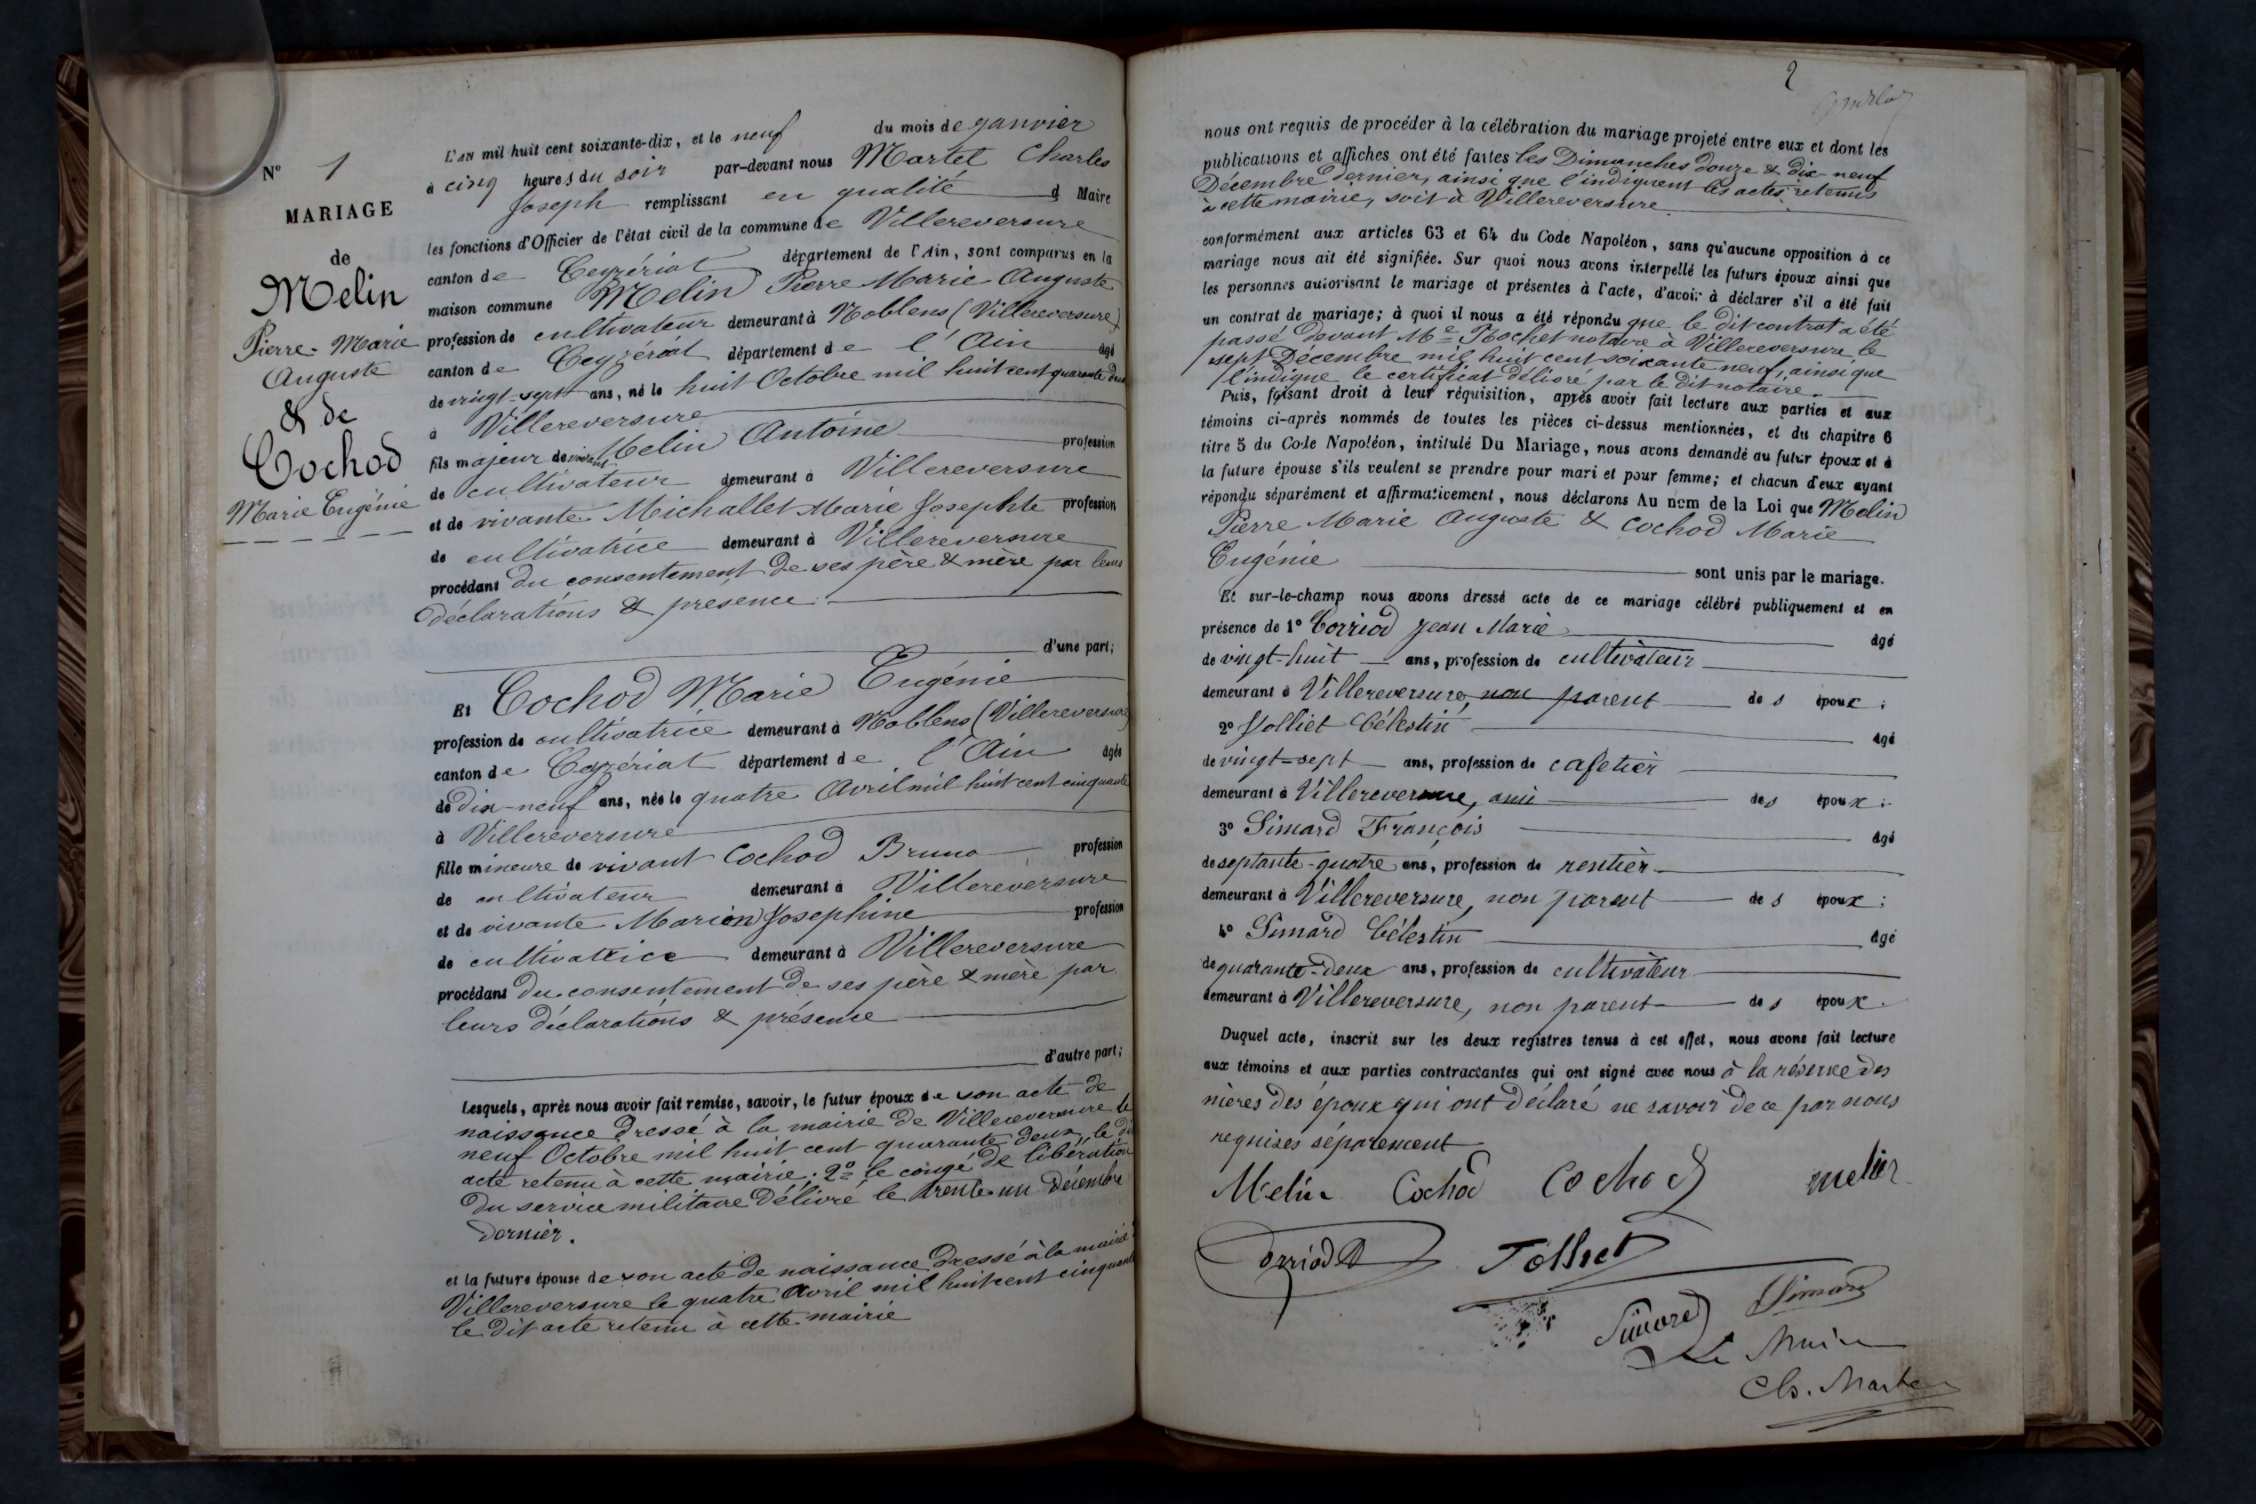 N° 1
MARIAGE
de
Melin
Pierre-Marie
Auguste
& de
Cochod
Marie Eugénie
L'AN mil huit cent soixante-dix, et le neuf du mois de Janvier
à cinq heures du soir par-devant nous Martet Charles
Joseph remplissant en qualité d Maire
les fonctions d'Officier de l'état civil de la commune de Villereversure
canton de Ceyzériat département de l'Ain, sont comparus en la
maison commune Melin Pierre Marie Auguste
profession de cultivateur demeurant à Noblens (Villereversure)
canton de Ceyzériat département de l'Ain âgé
de vingt-sept ans, né le huit Octobre mil huit cent quarante deux
à Villereversure
fils majeur de vivant Melin Antoine profession
de cultivateur demeurant à Villereversure
et de vivante Michallet Marie Josephte profession
de cultivatrice demeurant à Villereversure
procédant du consentement de ses père & mère par leurs
déclarations & présence
d'une part;
Et Cochod Marie Eugénie
profession de cultivatrice demeurant à Noblens (Villereversure)
canton de Ceyzériat département de l'Ain âgée
de dix-neuf ans, née le quatre Avril mil huit cent cinquante
à Villereversure
fille mineure de vivant Cochod Bruno profession
de cultivateur demeurant à Villereversure
et de vivante Marion Josephine profession
de cultivatrice demeurant à Villereversure
procédant du consentement de ses père & mère par
leurs déclarations & présence
d'autre part;
Lesquels, après nous avoir fait remise, savoir, le futur époux de son acte de
naissance dressé à la mairie de Villereversure le
neuf Octobre mil huit cent quarante deux, le dit
acte retenu à cette mairie; 2° le congé de libération
du service militaire délivré le trente un Décembre
dernier.
et la future épouse de son acte de naissance dressé à la mairie
Villereversure le quatre Avril mil huit cent cinquante
le dit acte retenu à cette mairie
2
nous ont requis de procéder à la célébration du mariage projeté entre eux et dont les
publications et affiches ont été faites les Dimanches douze & dix-neuf
Décembre dernier, ainsi que l'indiquent les actes retenus
à cette mairie, soit à Villereversure
conformément aux articles 63 et 64 du Code Napoléon, sans qu'aucune opposition à ce
mariage nous ait été signifiée. Sur quoi nous avons interpellé les futurs époux ainsi que
les personnes autorisant le mariage et présentes à l'acte, d'avoir à déclarer s'il a été fait
un contrat de mariage; à quoi il nous a été répondu que le dit contrat a été
passé devant Me Rochet notaire à Villereversure le
sept Décembre mil huit cent soixante neuf, ainsi que
l'indique le certificat délivré par le dit notaire.
Puis, faisant droit à leur réquisition, après avoir fait lecture aux parties et aux
témoins ci-après nommés de toutes les pièces ci-dessus mentionnées, et du chapitre 6
titre 5 du Code Napoléon, intitulé Du Mariage, nous avons demandé au futur époux et à
la future épouse s'ils veulent se prendre pour mari et pour femme; et chacun d'eux ayant
répondu séparément et affirmativement, nous déclarons Au nom de la Loi que Melin
Pierre Marie Auguste & Cochod Marie
Eugénie sont unis par le mariage.
Et sur-le-champ nous avons dressé acte de ce mariage célébré publiquement et en
présence de 1° Corriod Jean Marie âgé
de vingt-huit ans, profession de cultivateur
demeurant à Villereversure, non parent de s époux;
2° Jolliet Célestin âgé
de vingt-sept ans, profession de cafetier
demeurant à Villereversure, ami des époux;
3° Simard François âgé
de septante-quatre ans, profession de rentier
demeurant à Villereversure, non parent de s époux;
4° Simard Célestin âgé
de quarante-deux ans, profession de cultivateur
demeurant à Villereversure, non parent de s époux.
Duquel acte, inscrit sur les deux registres tenus à cet effet, nous avons fait lecture
aux témoins et aux parties contractantes qui ont signé avec nous à la réserve des
mères des époux qui ont déclaré ne savoir de ce par nous
requises séparement
Melin Cochod Cochod melin
Corriod Jolliet
Simard Simard
Le Maire
Ch. Martet